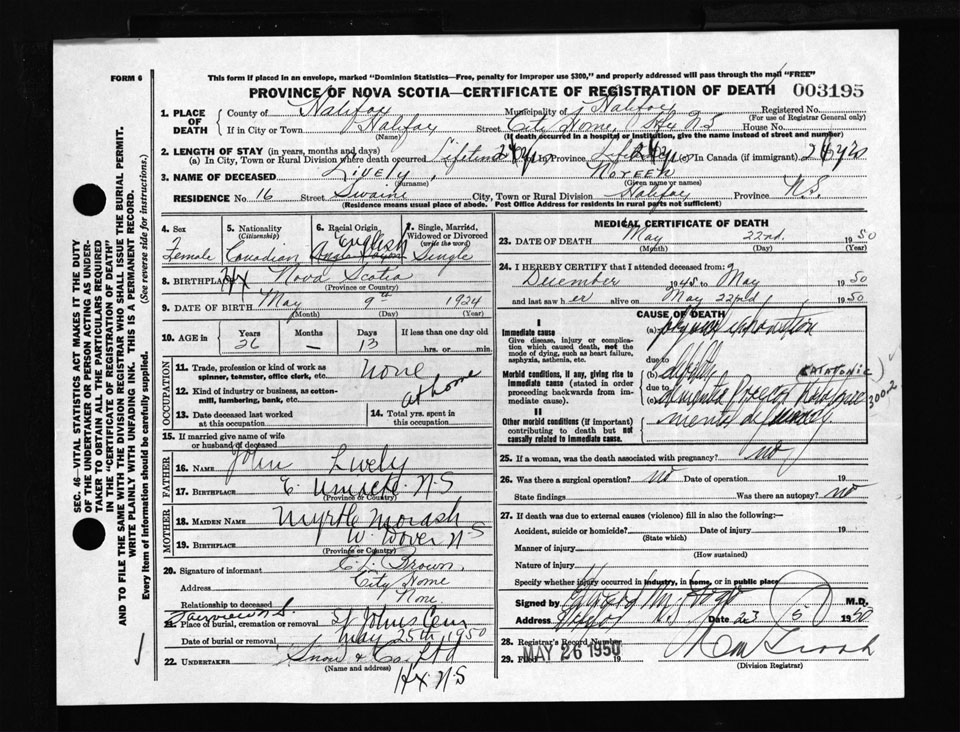 FORM 6
This form if placed in an envelope, marked "Dominion Statistics—Free, penalty for improper use $300," and properly addressed will pass through the mail "FREE"
PROVINCE OF NOVA SCOTIA—CERTIFICATE OF REGISTRATION OF DEATH 003195
1. PLACE OF DEATH
County of Halifax Municipality of Halifax Registered No.
(For use of Registrar General only)
If in City or Town Halifax Street City Home, House No.
(Name) (If death occurred in a hospital or institution, give the name instead of street and number)
2. LENGTH OF STAY (in years, months and days)
(a) In City, Town or Rural Division where death occurred Lifetime (b) In Province (c) In Canada (if immigrant)
3. NAME OF DECEASED Lively, Noreen
(Surname) (Given name or names)
RESIDENCE No. 16 Street Swaine City, Town or Rural Division Halifax Province N.S.
(Residence means usual place of abode. Post Office Address for residents in rural parts not sufficient)
4. Sex
Female
5. Nationality
(Citizenship)
Canadian
6. Racial Origin
English
7. Single, Married, Widowed or Divorced
(write the word)
Single
8. BIRTHPLACE Hx Nova Scotia
(Province or Country)
9. DATE OF BIRTH May 9th 1924
(Month) (Day) (Year)
10. AGE in Years Months Days If less than one day old
26 — 13 hrs. or min.
OCCUPATION
11. Trade, profession or kind of work as spinner, teamster, office clerk, etc. None
12. Kind of industry or business, as cotton-mill, lumbering, bank, etc. at home
13. Date deceased last worked at this occupation
14. Total yrs. spent in this occupation
15. If married give name of wife or husband of deceased
FATHER
16. NAME John Lively
17. BIRTHPLACE E. Uniacke N.S
(Province or Country)
MOTHER
18. MAIDEN NAME Myrtle Morash
19. BIRTHPLACE W. Dover N S
(Province or Country)
20. Signature of informant Brown
Address City Home
Relationship to deceased None
Fairview
21. Place of burial, cremation or removal St Johns Cem
Date of burial or removal May 25th 1950
22. UNDERTAKER Snow & Co Ltd
(Name and address)
Hx N.S
MEDICAL CERTIFICATE OF DEATH
23. DATE OF DEATH May 22nd. 1950
(Month) (Day) (Year)
24. I HEREBY CERTIFY that I attended deceased from
December 1945 to May 1950
and last saw her alive on May 22nd 1950
CAUSE OF DEATH
I
Immediate cause
Give disease, injury or complication which caused death, not the mode of dying, such as heart failure, asphyxia, asthenia, etc.
(a)
due to
Morbid conditions, if any, giving rise to immediate cause (stated in order proceeding backwards from immediate cause).
(b)
due to
(c) dementia Praecox (CATATONIC)
300.2
II
Other morbid conditions (if important) contributing to death but not causally related to immediate cause.
mental deficiency
25. If a woman, was the death associated with pregnancy? no
26. Was there a surgical operation? no Date of operation 19
State findings Was there an autopsy? no
27. If death was due to external causes (violence) fill in also the following:—
Accident, suicide or homicide? Date of injury 19
(State which)
Manner of injury
(How sustained)
Nature of injury
Specify whether injury occurred in industry, in home, or in public place
Signed by M.D.
Address Date 23 5 1950
28. Registrar's Record Number
29. Filed MAY 26 1950 19
(Division Registrar)
SEC. 46—VITAL STATISTICS ACT MAKES IT THE DUTY OF THE UNDERTAKER OR PERSON ACTING AS UNDERTAKER TO OBTAIN ALL THE PARTICULARS REQUIRED IN THE "CERTIFICATE OF REGISTRATION OF DEATH" AND TO FILE THE SAME WITH THE DIVISION REGISTRAR WHO SHALL ISSUE THE BURIAL PERMIT.
WRITE PLAINLY WITH UNFADING INK. THIS IS A PERMANENT RECORD.
Every item of information should be carefully supplied. (See reverse side for instructions.)